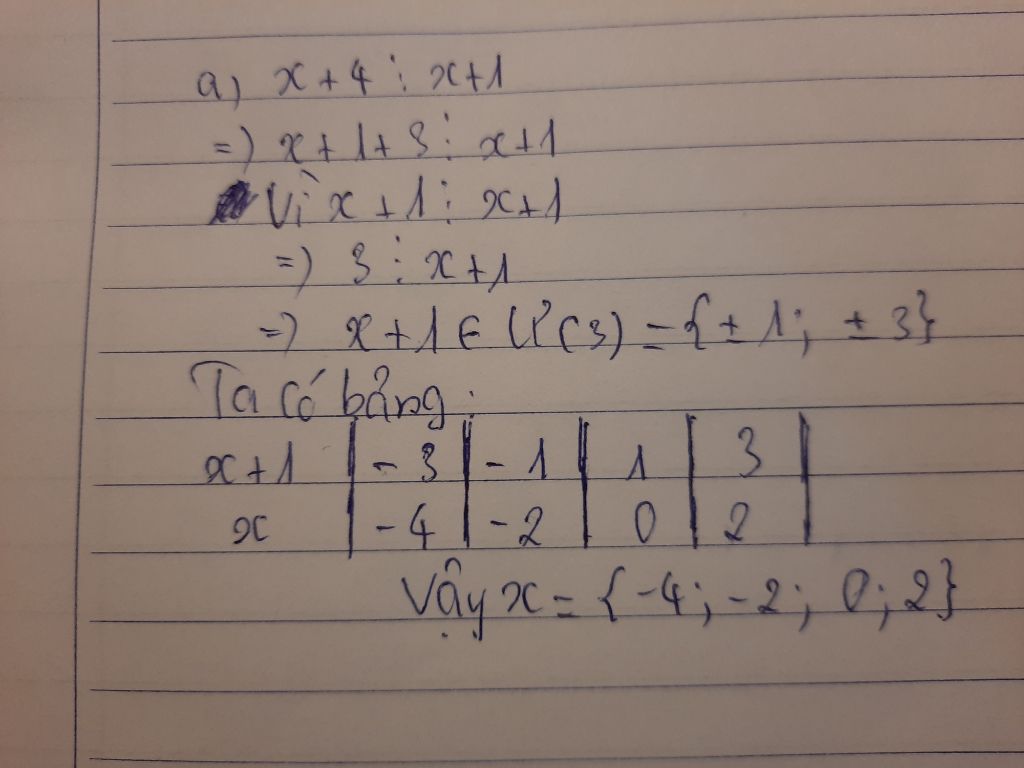 a) x+4 ⋮ x+1
=) x+1+3 ⋮ x+1
Vì x+1 ⋮ x+1
=) 3 ⋮ x+1
=) x+1 ∈ Ư(3) = {±1; ±3}
Ta có bảng:
x+1 | -3 | -1 | 1 | 3 |
x | -4 | -2 | 0 | 2 |
Vậy x = {-4; -2; 0; 2}